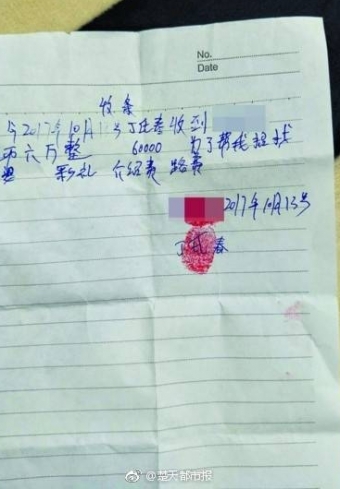 No.
Date
收条
今2017年10月13号丁氏春收到
币六万整 60000 为了帮我
彩礼 介绍费 路费
2017年10月13号
丁氏春
@楚天都市报